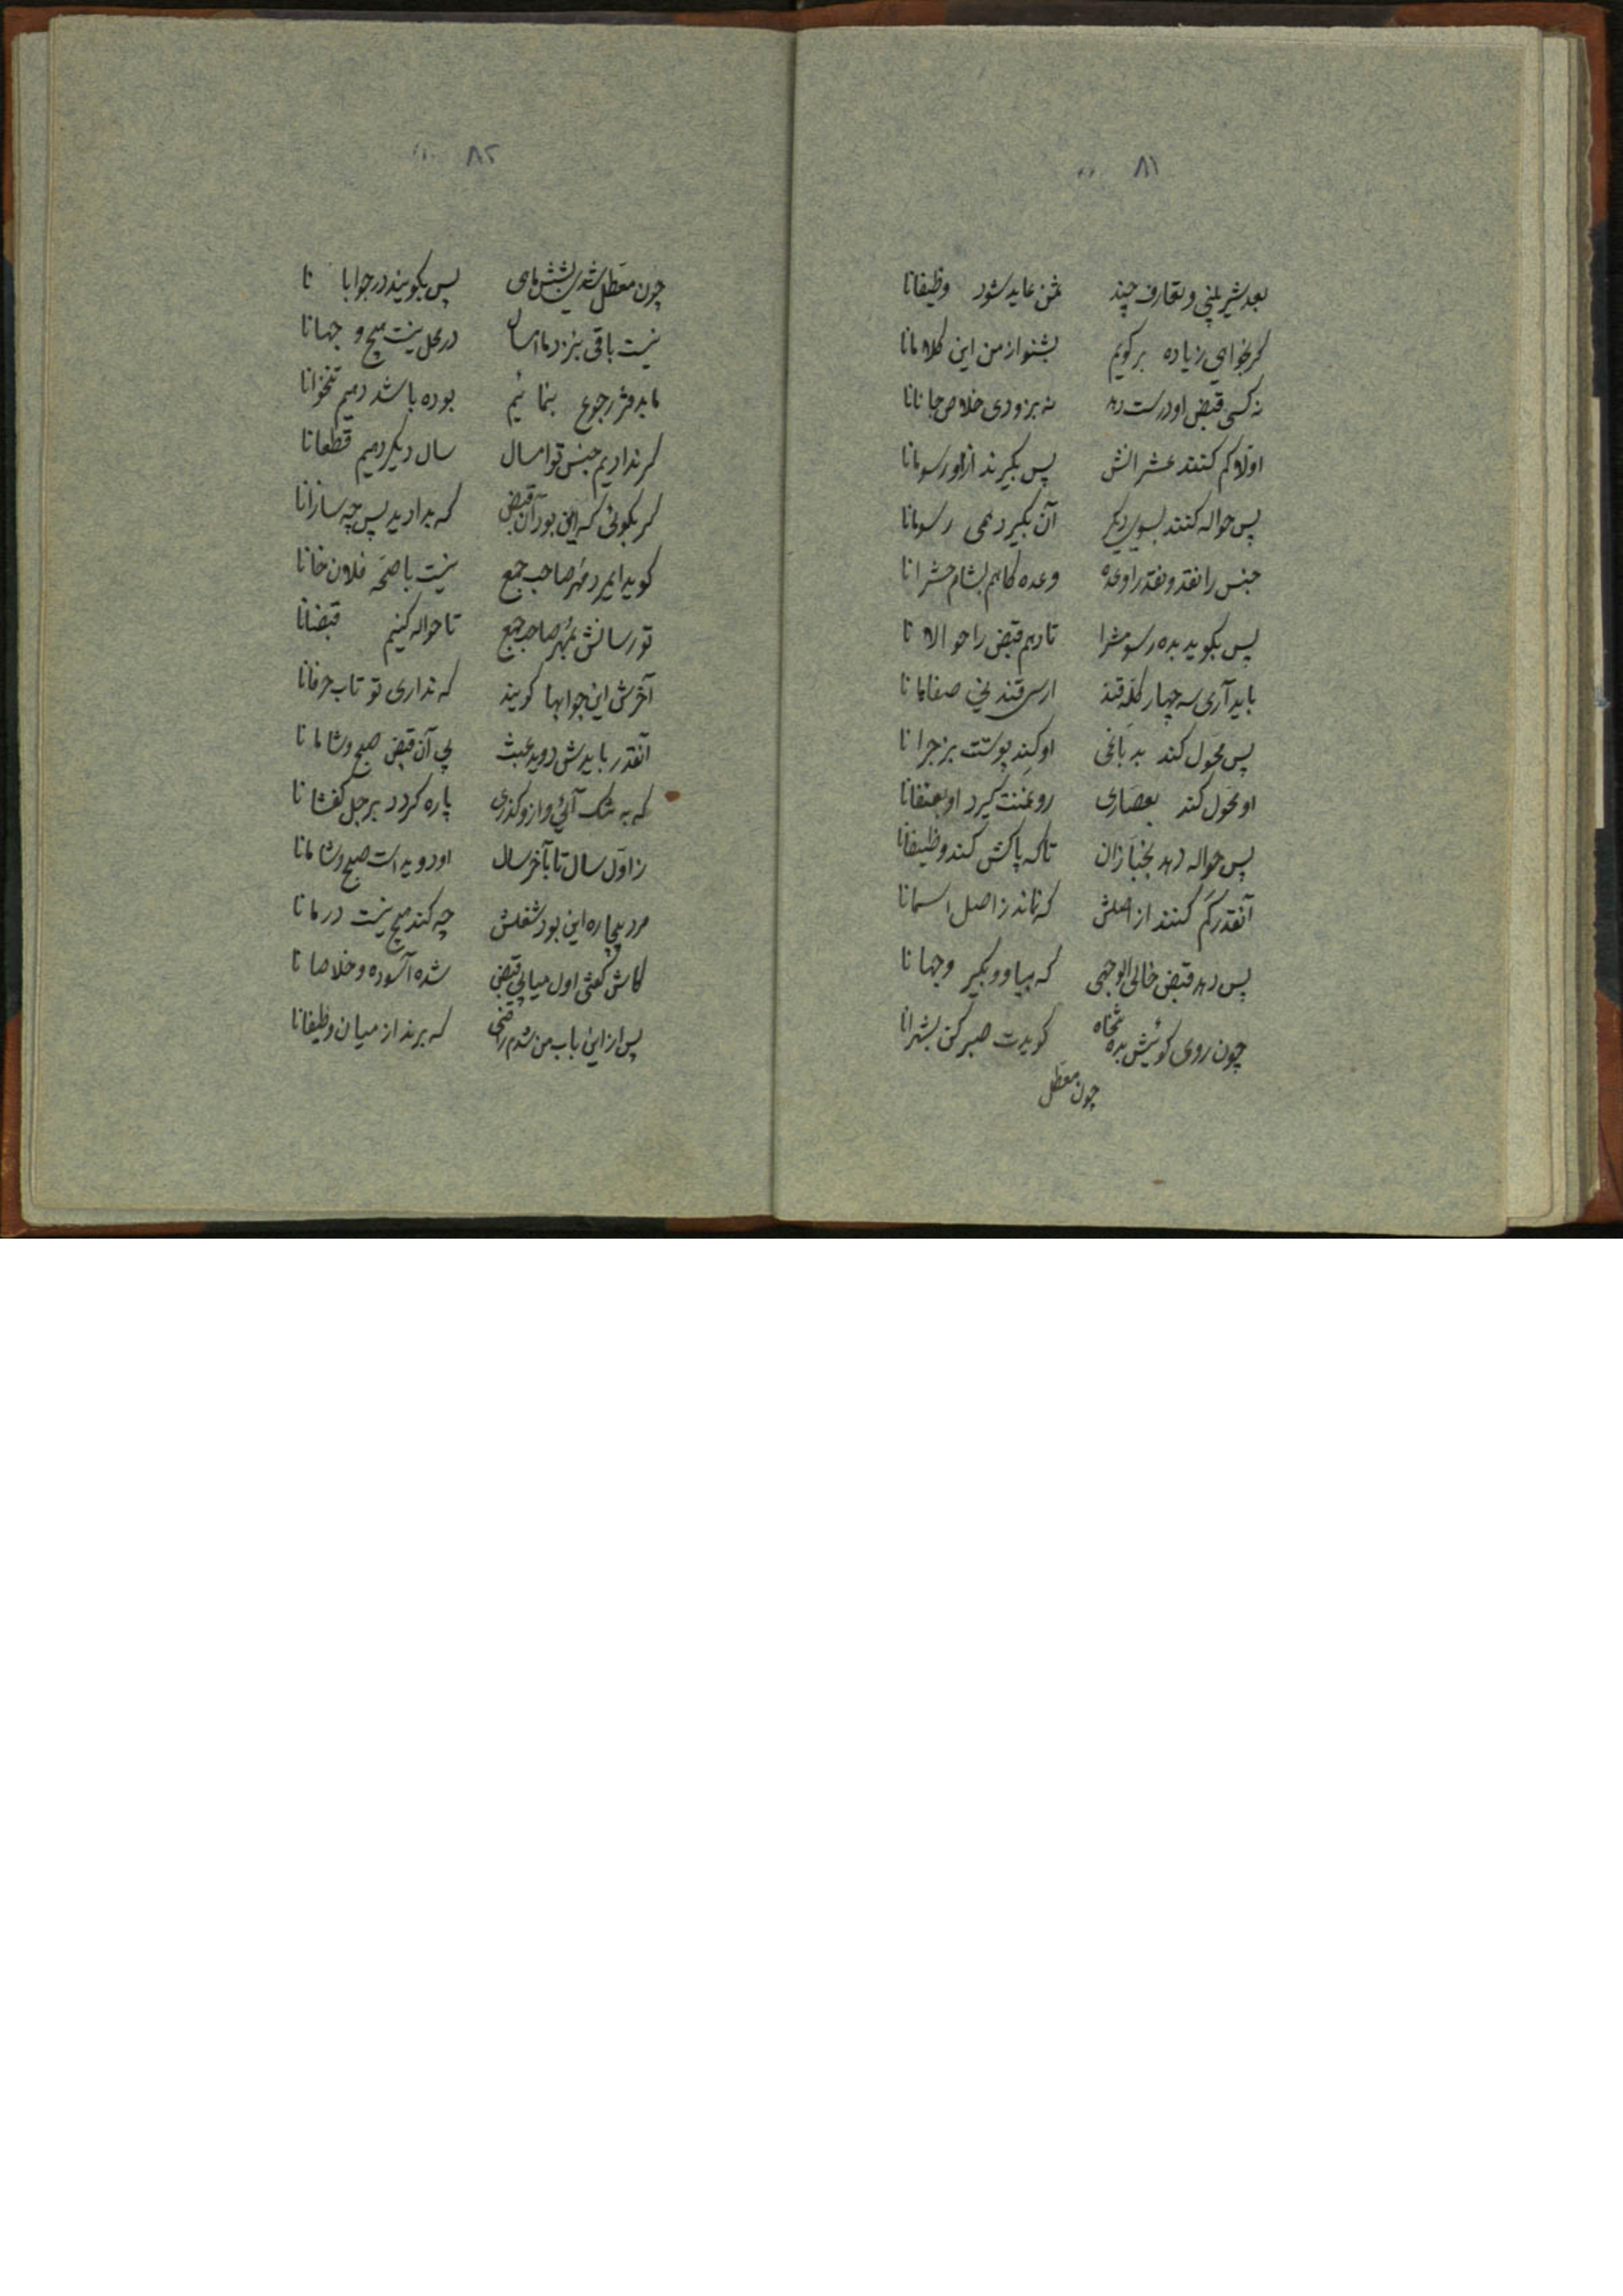 ۸۱
بعد شیرینی و تعارف چند ثمن عاید شود وظیفانا
گر بخواهی زیاده برگویم بشنو از من این کلامانا
نه کسی قبض او درست دهد نه بزودی خلاص جانانا
اولا کم کنند عشرانش پس بگیرند از او رسومانا
پس حواله کنند بسوی دیگر آن بگیرد همی رسومانا
جنس را نقد و نقد را وعده وعده کاهم بشام حشرانا
پس بگوید بده رسومش را تا دهم قبض را حوالانا
باید آری سه چهار کله قند ارسی قند نی صفاهانا
پس محول کند به باغی او کند پوستت بزجرانا
او محول کند بعصاری روغنت گیرد او بعنفانا
پس حواله دهد بخبازان تا که پاکش کند وظیفانا
آنقدر کم کنند از اصلش که نماند ز اصل اسمانا
پس دهد قبض خالی الوجهی که بیا و بگیر وجهانا
چون روی گوئیش بده تنخواه گویدت صبر کن بشهرانا
چون معطل
۸۲
چون معطل شدی بشش ماهی پس بگویند در جوابانا
نیست باقی بنزد ما امسال در محل نیست هیچ وجهانا
ما بدفتر رجوع بنمائیم بوده باشد دهیم تنخوانا
گر نداریم جنس تو امسال سال دیگر دهیم قطعانا
گر بگوئی که این بود آن قبض که بدادید پس چه سازانا
گوید ایمرد مهر صاحب جمع نیست با صحه فلان خانا
تو رسانش بمهر صاحب جمع تا حواله کنیم قبضانا
آخرش این جوابها گویند که نداری تو تاب حرفانا
آنقدر بایدش دوید عبث پی آن قبض صبح و شامانا
که به تنگ آئی و از او گذری پاره گردد برجل کفشانا
ز اول سال تا بآخر سال او دویده است صبح و شامانا
مرد بیچاره این بود شغلش چه کند هیچ نیست درمانا
کاش گفتی اول میا پی قبض شده آسوده و خلاصانا
پس از این باب من شدم راضی که برند از میان وظیفانا